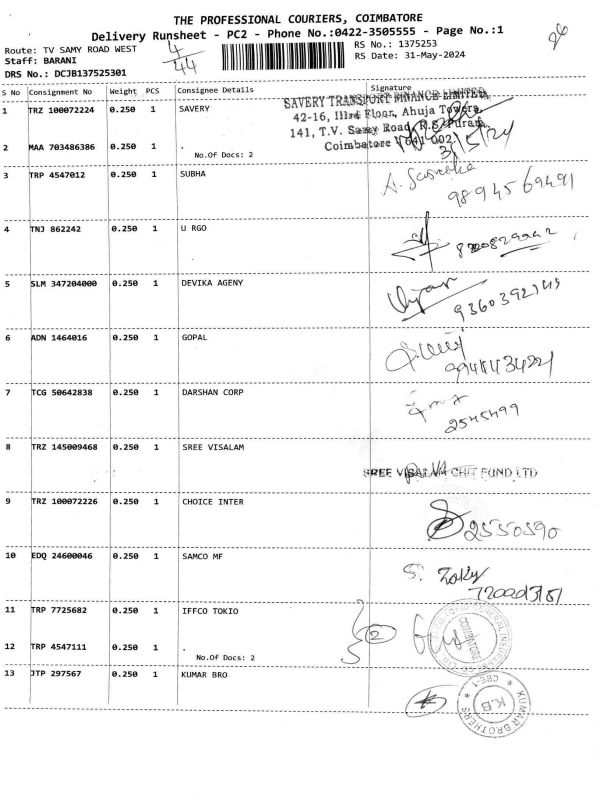 THE PROFESSIONAL COURIERS, COIMBATORE
Delivery Runsheet - PC2 - Phone No.:0422-3505555 - Page No.:1
Route: TV SAMY ROAD WEST
4/44
RS No.: 1375253
26
Staff: BARANI
RS Date: 31-May-2024
DRS No.: DCJB137525301
S No Consignment No Weight PCS Consignee Details Signature
1 TRZ 100072224 0.250 1 SAVERY
SAVERY TRANSPORT FINANCE LIMITED,
42-16, IIIrd Floor, Ahuja Towers,
141, T.V. Samy Road, R.S. Puram,
Coimbatore 641 002.
31/5/24
2 MAA 703486386 0.250 1 .
No.Of Docs: 2
3 TRP 4547012 0.250 1 SUBHA
9894569491
4 TNJ 862242 0.250 1 U RGO
5 SLM 347204000 0.250 1 DEVIKA AGENY
6 ADN 1464016 0.250 1 GOPAL
7 TCG 50642838 0.250 1 DARSHAN CORP
2545499
8 TRZ 145009468 0.250 1 SREE VISALAM
SREE VISALAM CHIT FUND LTD
9 TRZ 100072226 0.250 1 CHOICE INTER
2550590
10 EDQ 24600046 0.250 1 SAMCO MF
11 TRP 7725682 0.250 1 IFFCO TOKIO
2
COIMBATORE
12 TRP 4547111 0.250 1 .
No.Of Docs: 2
13 JTP 297567 0.250 1 KUMAR BRO
KUMAR BROTHERS
CBE-1
K.B